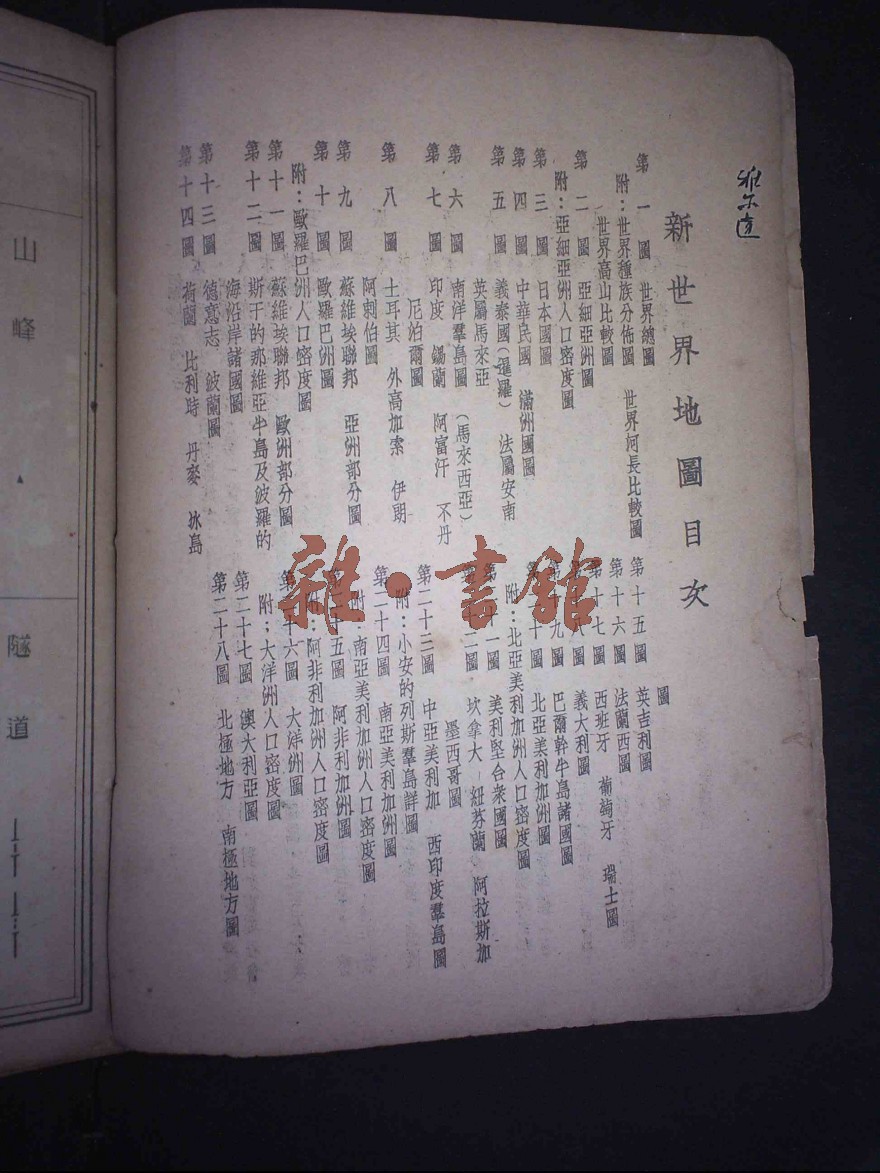 新世界地圖目次
第一圖 世界總圖
附：世界種族分佈圖 世界河長比較圖
世界高山比較圖
第二圖 亞細亞洲圖
附：亞細亞洲人口密度圖
第三圖 日本國圖
第四圖 中華民國 滿洲國圖
第五圖 義泰國（暹羅） 法屬安南
英屬馬來亞
第六圖 南洋羣島圖（馬來西亞）
第七圖 印度 錫蘭 阿富汗 不丹
尼泊爾圖
第八圖 土耳其 外高加索 伊朗
阿剌伯圖
第九圖 蘇維埃聯邦 亞洲部分圖
第十圖 歐羅巴洲圖
附：歐羅巴洲人口密度圖
第十一圖 蘇維埃聯邦 歐洲部分圖
第十二圖 斯干的那維亞半島及波羅的
海沿岸諸國圖
第十三圖 德意志 波蘭圖
第十四圖 荷蘭 比利時 丹麥 冰島
圖
第十五圖 英吉利圖
第十六圖 法蘭西圖
第十七圖 西班牙 葡萄牙 瑞士圖
十八圖 義大利圖
九圖 巴爾幹半島諸國圖
十圖 北亞美利加洲圖
附：北亞美利加洲人口密度圖
十一圖 美利堅合衆國圖
十二圖 坎拿大 紐芬蘭 阿拉斯加
墨西哥圖
第二十三圖 中亞美利加 西印度羣島圖
附：小安的列斯羣島詳圖
第二十四圖 南亞美利加洲圖
附：南亞美利加洲人口密度圖
十五圖 阿非利加洲圖
附：阿非利加洲人口密度圖
十六圖 大洋洲圖
附：大洋洲人口密度圖
第二十七圖 澳大利亞圖
第二十八圖 北極地方 南極地方圖
山峰
隧道
雜·書館